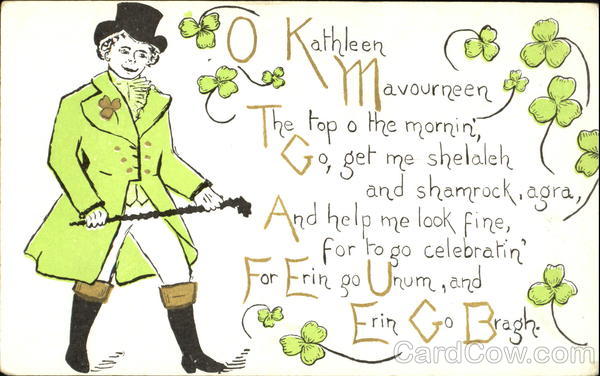 O Kathleen
Mavourneen
The top o the mornin',
Go, get me shelaleh
and shamrock, agra,
And help me look fine,
for to go celebratin'
For Erin go Unum, and
Erin Go Bragh.
CardCow.com